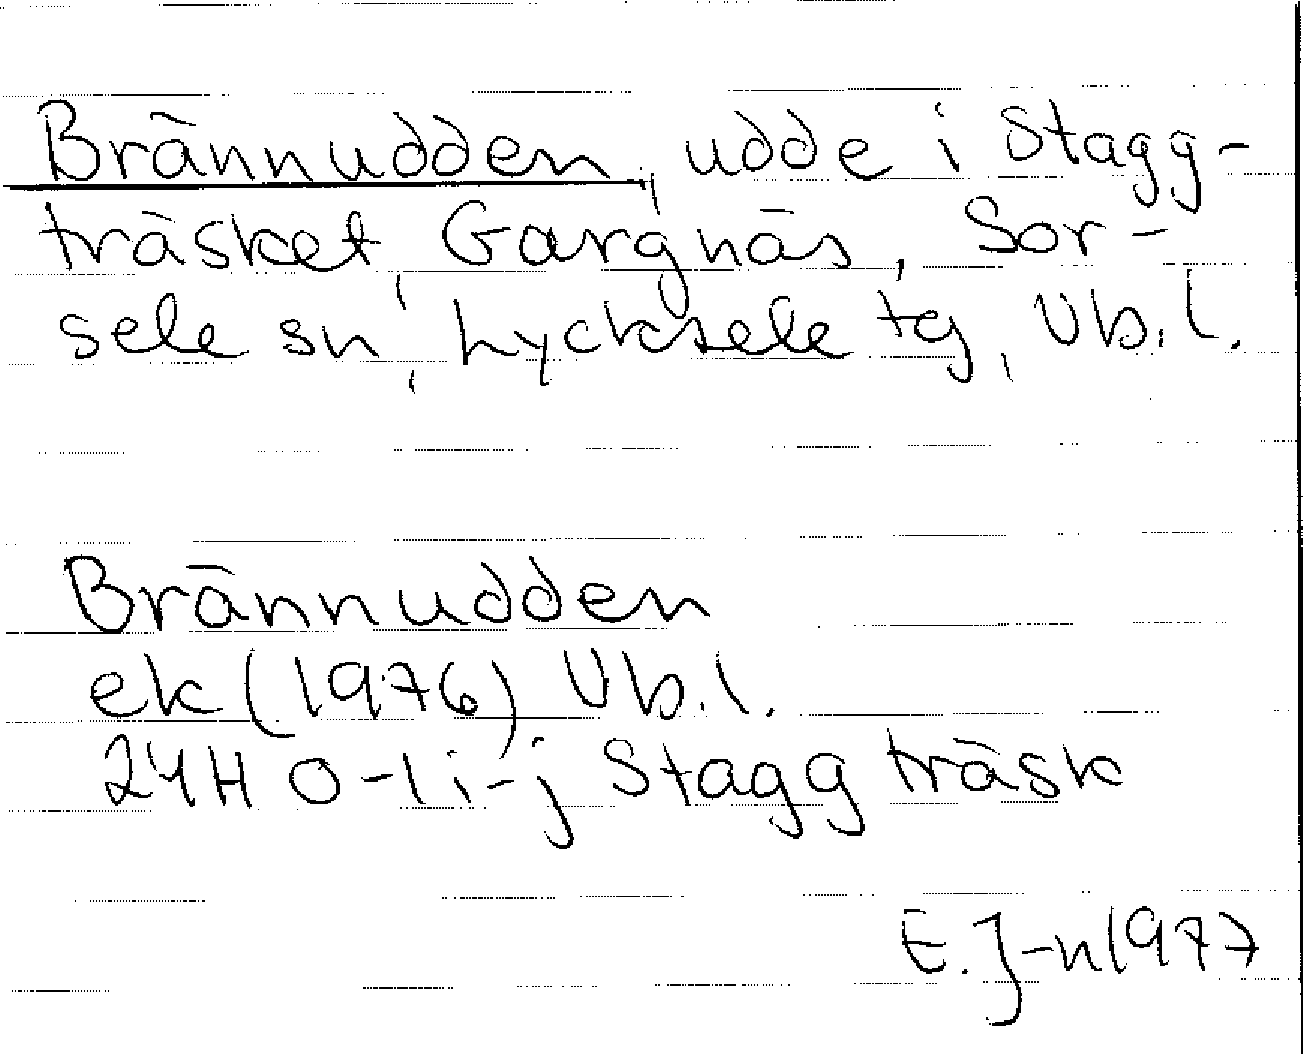 Brännudden, udde i Stagg-
träsket, Gargnäs, Sor-
sele sn, Lycksele tg, Vb.l.
Brännudden
ek (1976) Vb.l.
24H 0-1 i-j Staggträsk
E. J-n 1977